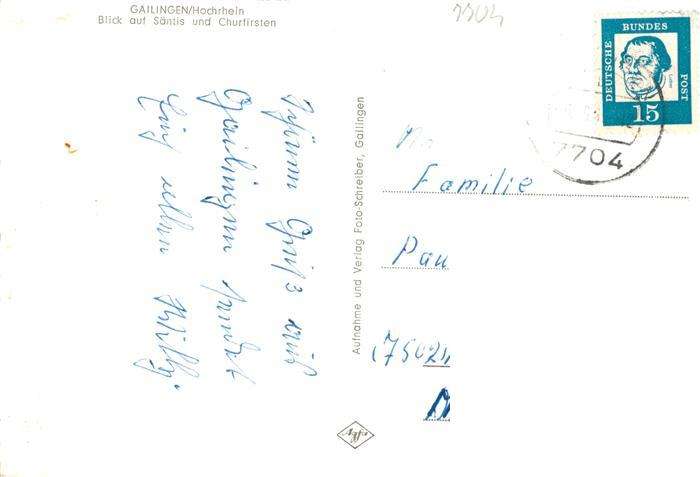 GAILINGEN/Hochrhein
Blick auf Säntis und Churfirsten
7704
DEUTSCHE BUNDES POST
Luther
15
7704
Schönen Gruß aus
Gailingen sendet
Euch allen Willy.
Aufnahme und Verlag Foto-Schreiber, Gailingen
Familie
Pau
(7502
Agfa